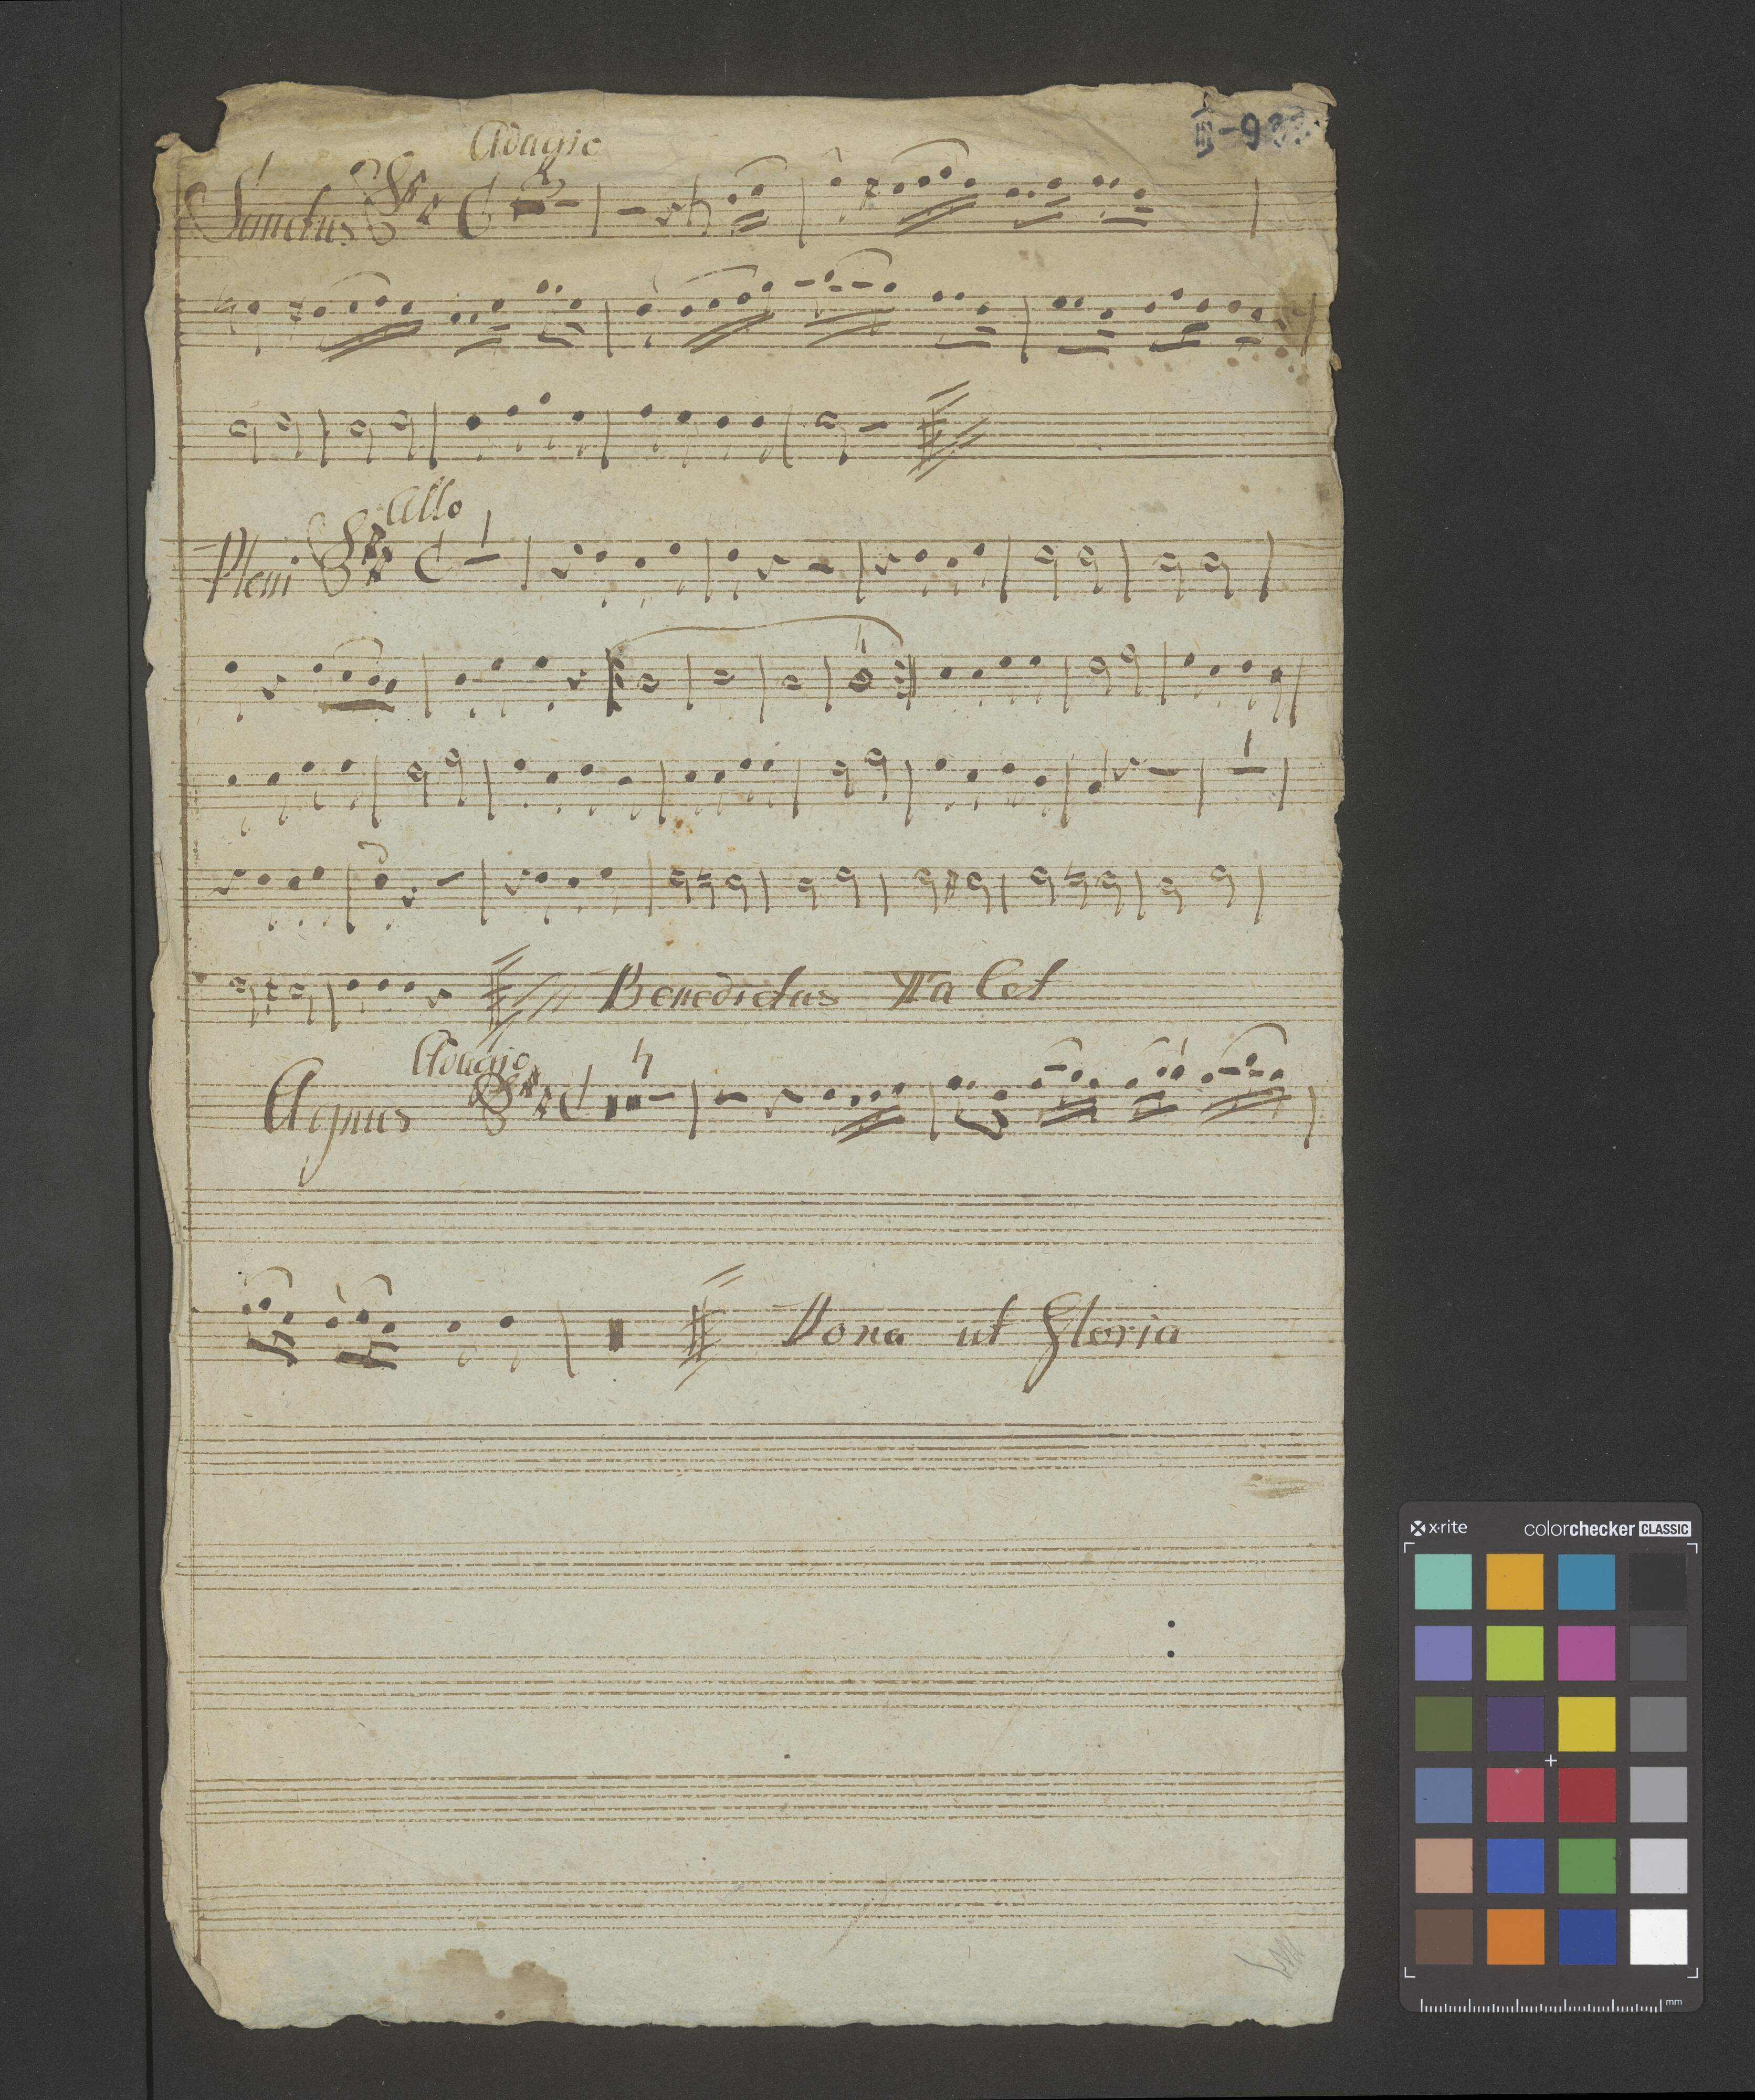 Adagio
Sanctus
Allo
Pleni
Benedictus Tacet
Adagio
Agnus
Dona ut Gloria
x·rite colorchecker CLASSIC
mm